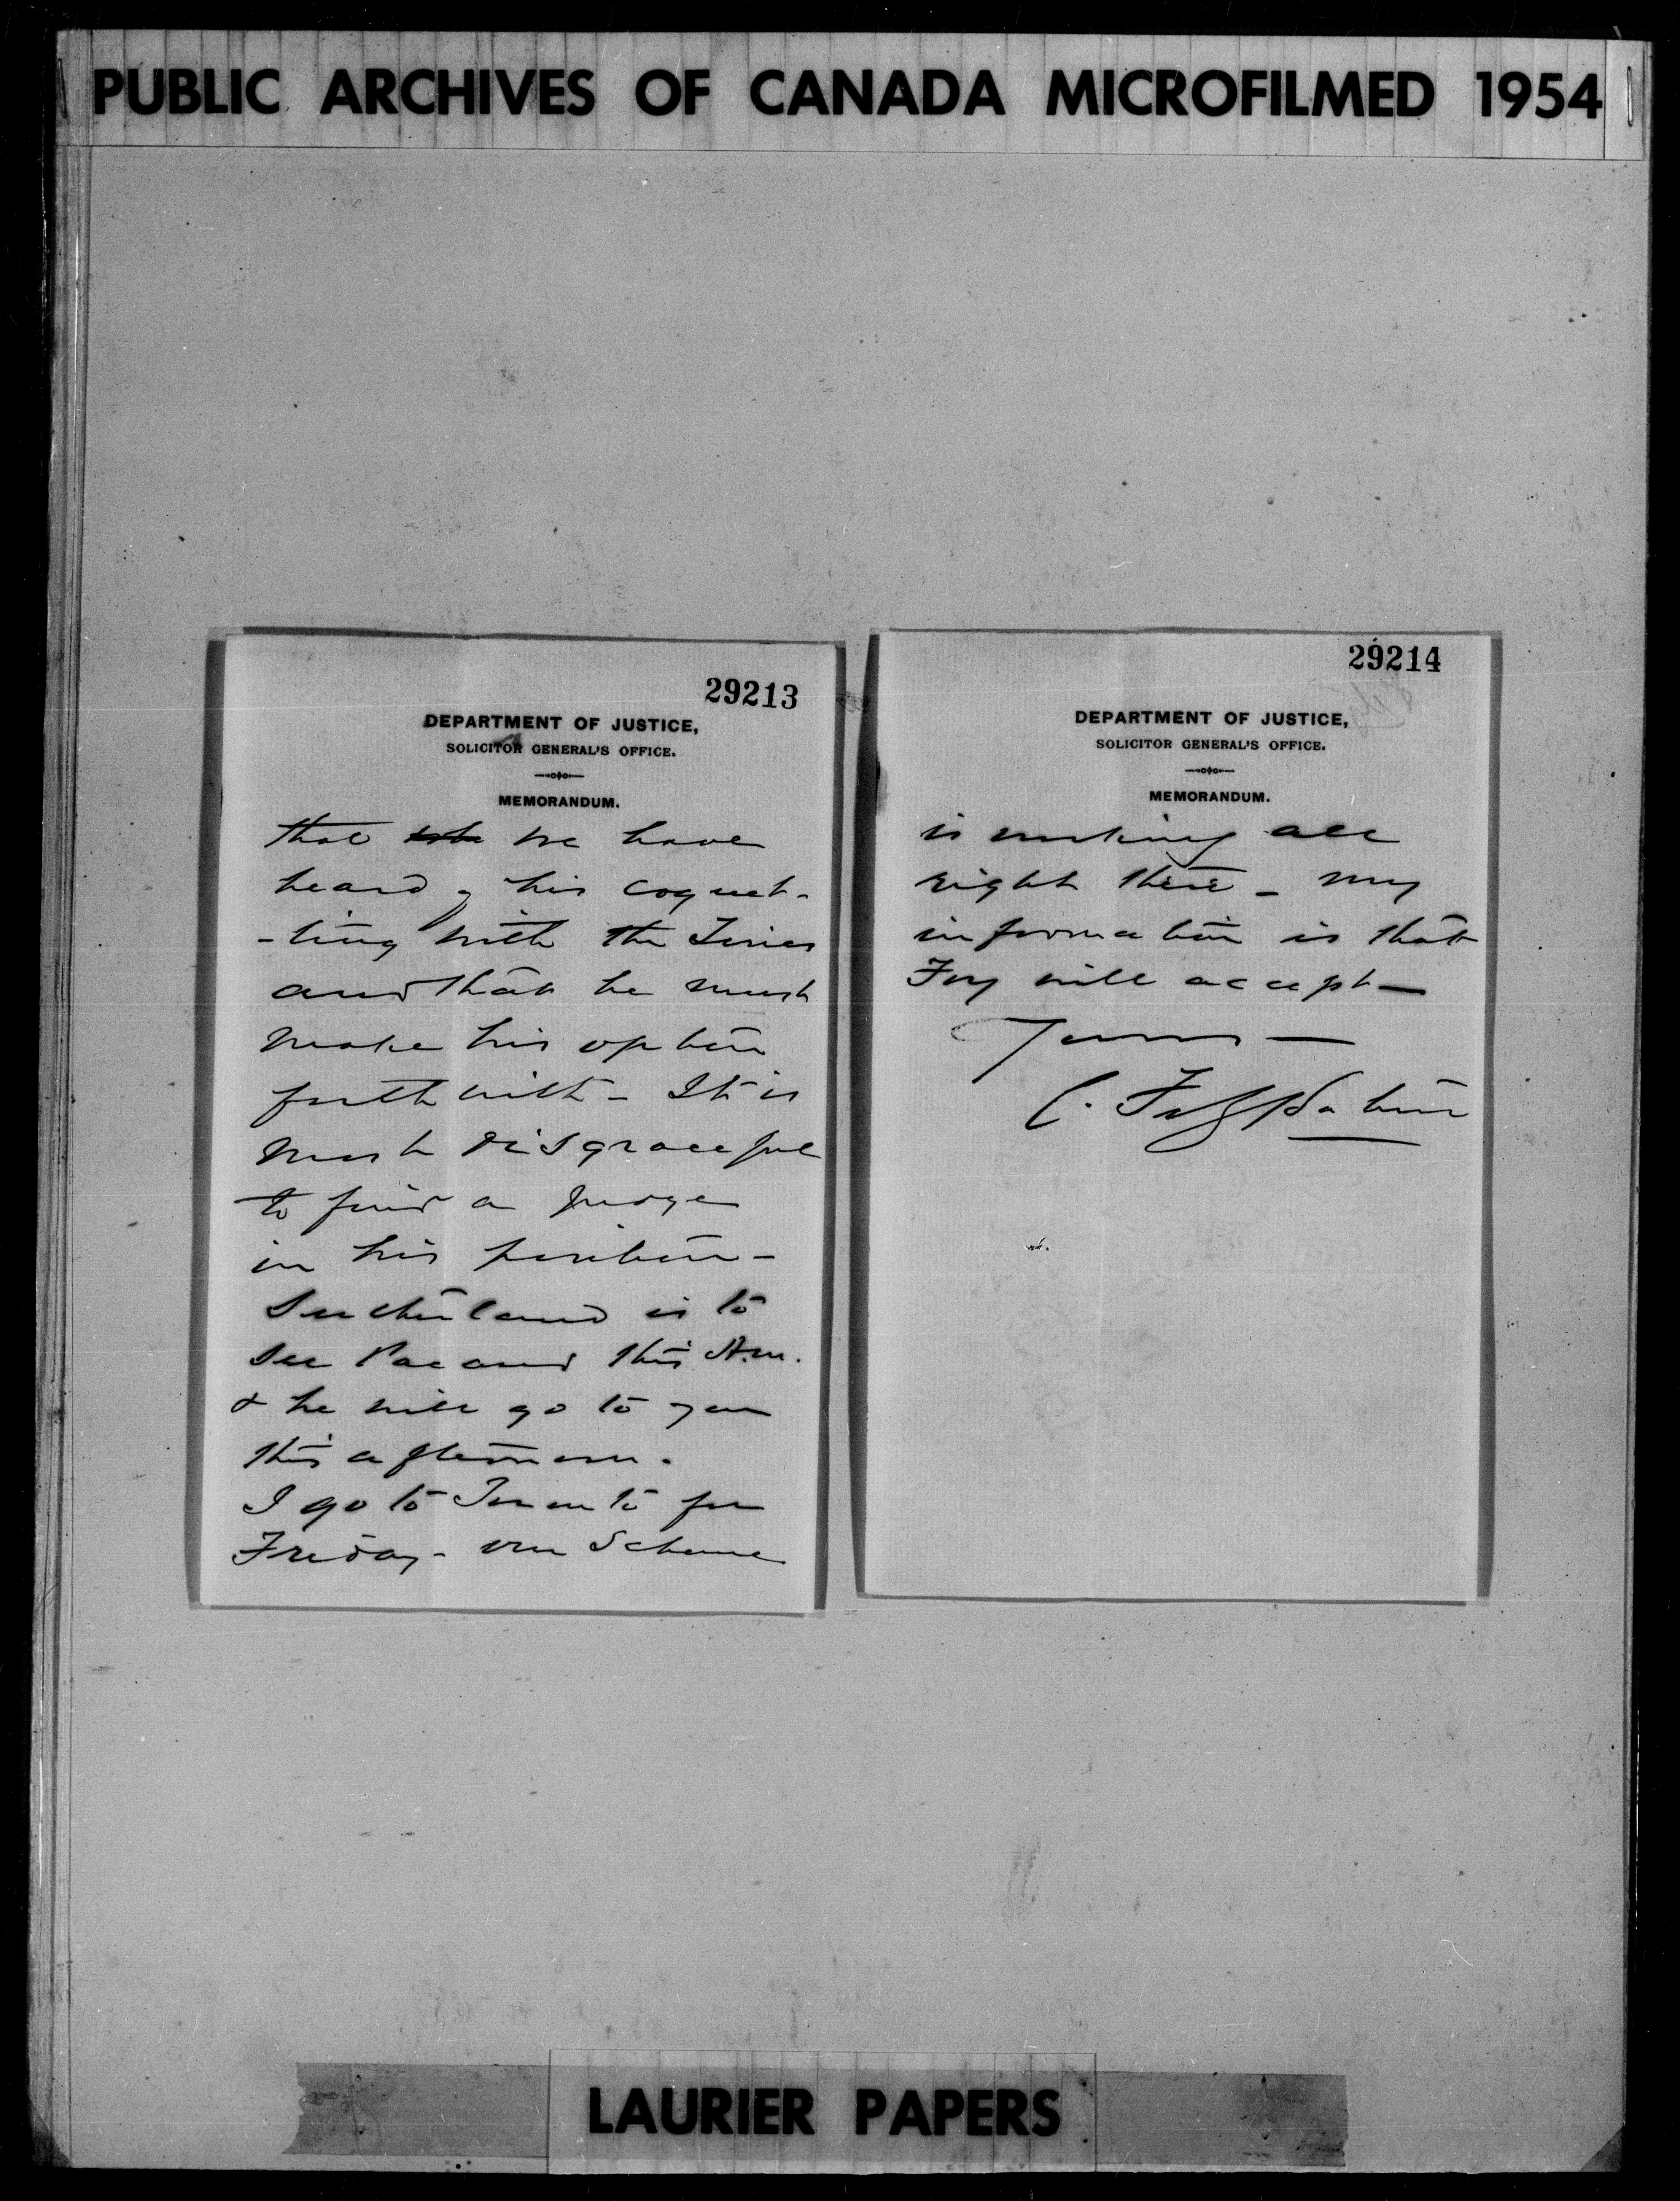 PUBLIC ARCHIVES OF CANADA MICROFILMED 1954
29213
DEPARTMENT OF JUSTICE,
SOLICITOR GENERAL'S OFFICE.
MEMORANDUM.
that we have
heard of his coquet-
-ting with the Tories
and that he must
make his option
forthwith - It is
most disgraceful
to find a Judge
in his position -
Sutherland is to
see Pacaud this A.m.
& he will go to you
this afternoon.
I go to Toronto for
Friday - our Scheme
29214
DEPARTMENT OF JUSTICE,
SOLICITOR GENERAL'S OFFICE.
MEMORANDUM.
is working all
right there - my
information is that
Foy will accept -
Yours -
C. Fitzpatrick
LAURIER PAPERS